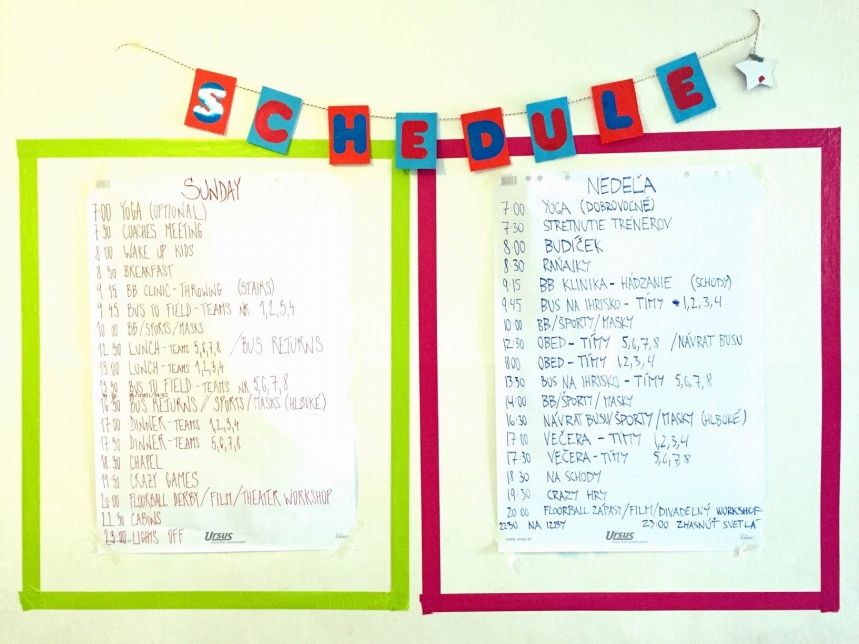 SCHEDULE
SUNDAY
7:00 YOGA (OPTIONAL)
7 30 COACHES MEETING
8 00 WAKE UP KIDS
8 30 BREAKFAST
9 15 BB CLINIC - THROWING (STAIRS)
9 45 BUS TO FIELD - TEAMS NR 1,2,3,4
10 00 BB/SPORTS/MASKS
12 30 LUNCH - TEAMS 5,6,7,8 /BUS RETURNS
13 00 LUNCH - TEAMS 1,2,3,4
13 30 BUS TO FIELD - TEAMS NR 5,6,7,8
16 30 BUS RETURNS/ SPORTS/MASKS (HLBOKÉ)
17 00 DINNER - TEAMS 1,2,3,4
17 30 DINNER - TEAMS 5,6,7,8
18 30 CHAPEL
19 30 CRAZY GAMES
20 00 FLOORBALL DERBY/FILM/THEATER WORKSHOP
22 30 CABINS
23 00 LIGHTS OFF
Ursus
NEDEĽA
7 00 YOGA (DOBROVOĽNÉ)
7 30 STRETNUTIE TRÉNEROV
8 00 BUDÍČEK
8 30 RAŇAJKY
9:15 BB KLINIKA - HÁDZANIE (SCHODY)
9:45 BUS NA IHRISKO - TÍMY 1,2,3,4
10:00 BB/ŠPORTY/MASKY
12:30 OBED - TÍMY 5,6,7,8 /NÁVRAT BUSU
OBED - TÍMY 1,2,3,4
13:30 BUS NA IHRISKO - TÍMY 5,6,7,8
14:00 BB/ŠPORTY/MASKY
16:30 NÁVRAT BUSU/ŠPORTY/MASKY (HLBOKÉ)
17 00 VEČERA - TÍMY 1,2,3,4
17:30 VEČERA - TÍMY 5,6,7,8
18 30 NA SCHODY
19:30 CRAZY HRY
20 00 FLOORBALL ZÁPAS/FILM/DIVADELNÝ WORKSHOP
22:30 NA IZBY 23:00 ZHASNÚŤ SVETLÁ
Ursus